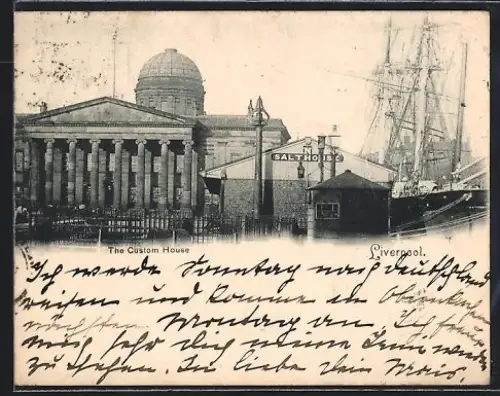 SALTHOUSE
The Custom House
Liverpool.
Ich werde Sonntag nach Deutschland
reisen und komme in
nächsten Montag an. Ich freue
mich sehr dich meine
zu sehen. In Liebe dein